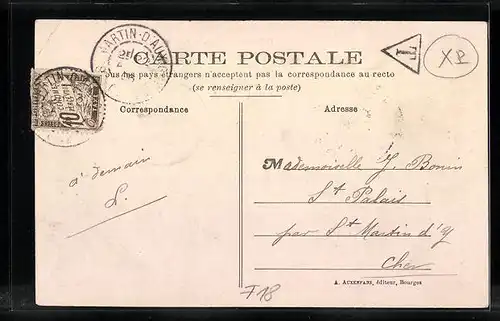 MARTIN-D'AU
CARTE POSTALE
T
XP
Tous les pays étrangers n'acceptent pas la correspondance au recto
(se renseigner à la poste)
10
Correspondance
Adresse
à demain
L.
Mademoiselle J. Bonin
St Palais
par St Martin d'
Cher
A. AUXENFANS, éditeur, Bourges
F18